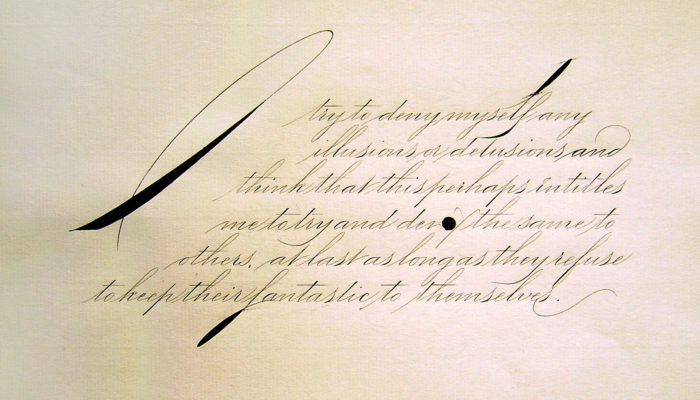 I try to deny myself any
illusions or delusions, and
think that this perhaps intitles
me to try and deny the same to
others, at last as long as they refuse
to keep their fantastic to themselves.